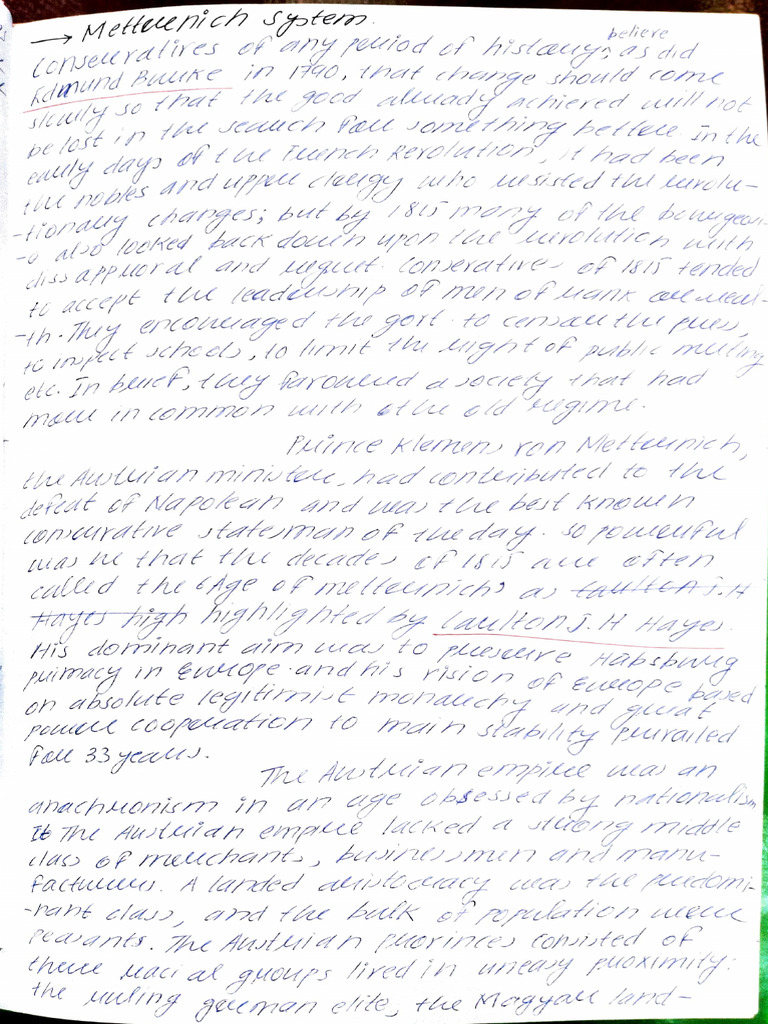 → Metternich System.
believe
Conservatives of any period of history, as did
Edmund Burke in 1790, that change should come
slowly so that the good already achieved will not
be lost in the search for something better. In the
early days of the French Revolution, it had been
the nobles and upper clergy who resisted the revolu-
-tionary changes; but by 1815 many of the bourgeoi-
-s also looked back down upon the revolution with
dissapproval and regret. Conservatives of 1815 tended
to accept the leadership of men of rank or weal-
-th. They encouraged the govt. to censor the press,
to inspect schools, to limit the right of public meeting
etc. In berief, they favoured a society that had
more in common with the old regime.
Prince Klemens von Metternich,
the Austrian minister, had contributed to the
defeat of Napolean and was the best known
conservative statesman of the day. so powerful
was he that the decades of 1815 are often
called the 'Age of metternich' as Caulton J.H
Hayes high highlighted by Caulton J. H Hayes.
His dominant aim was to preserve Habsburg
primacy in Europe and his vision of Europe based
on absolute legitimist monarchy and great
power cooperation to main stability prevailed
for 33 years.
The Austrian empire was an
anachronism in an age obsessed by nationalism
It The Austrian empire lacked a strong middle
class of merchants, businessmen and manu-
facturers. A landed aristocracy was the predomi-
-nant class, and the bulk of population were
peasants. The Austrian provinces consisted of
three racial groups lived in uneasy proximity:
the ruling german elite, the Magyar land-